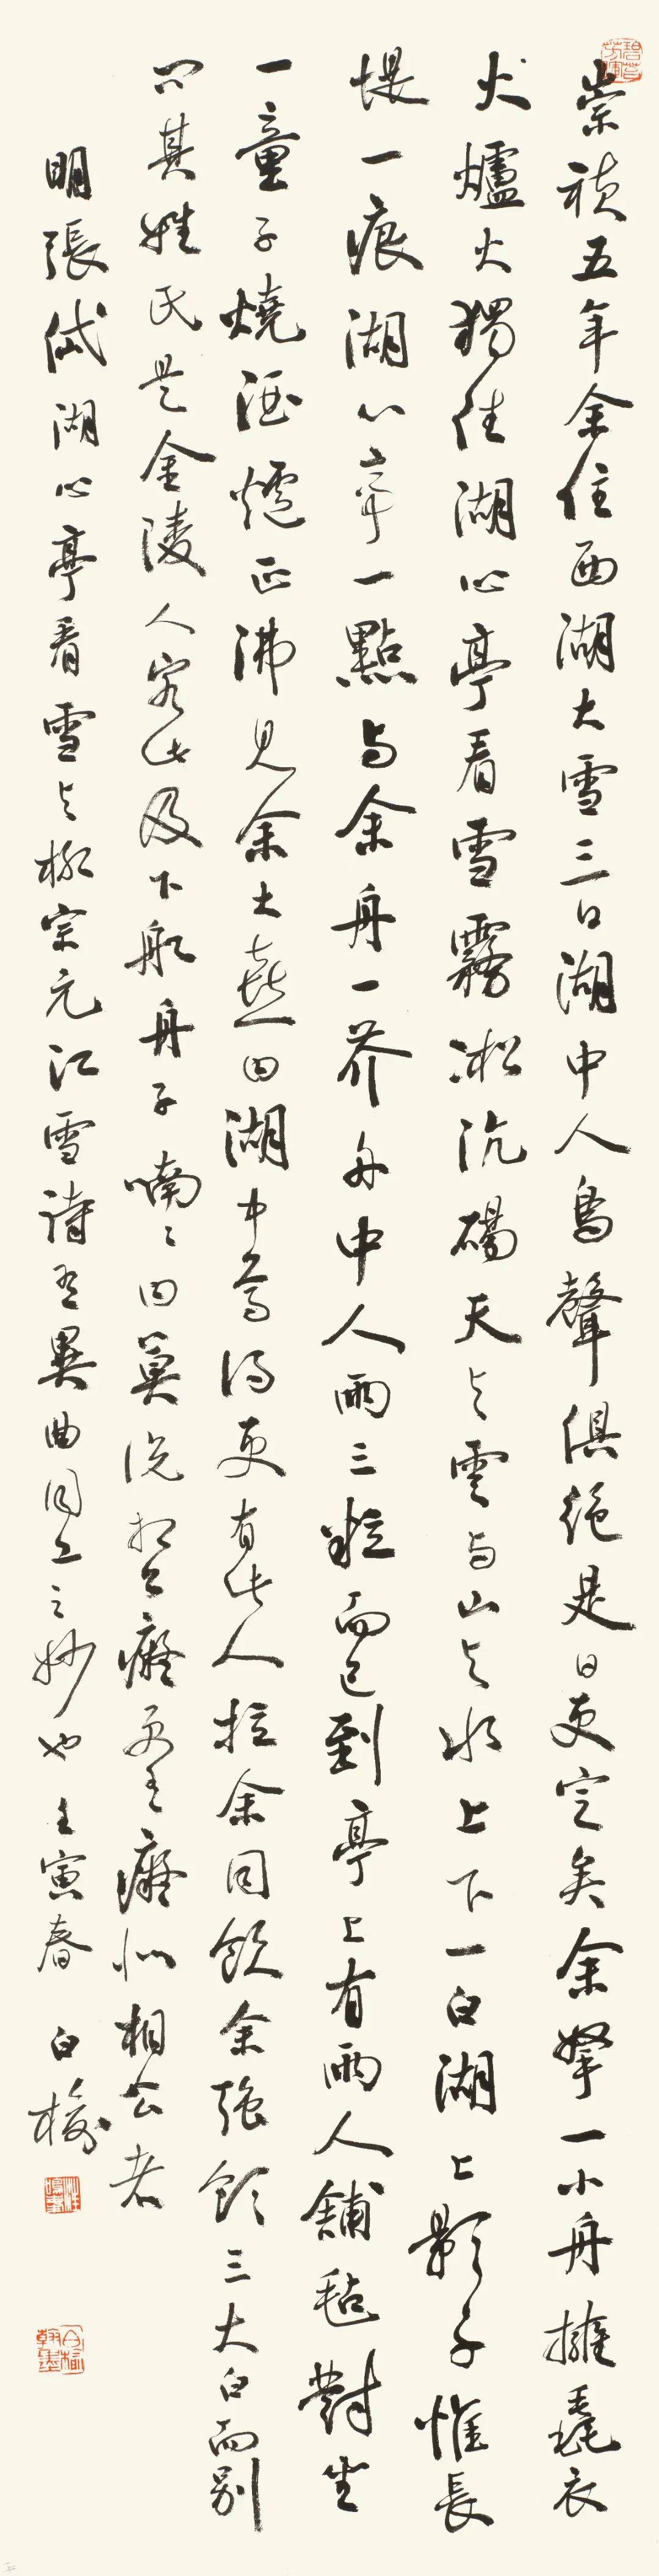 崇禎五年余住西湖大雪三日湖中人鳥聲俱絕是日更定矣余拏一小舟擁毳衣
火爐火獨往湖心亭看雪霧凇沆碭天与雲与山与水上下一白湖上影子惟長
堤一痕湖心亭一點与余舟一芥舟中人兩三粒而已到亭上有兩人鋪氈對坐
一童子燒酒爐正沸見余大喜曰湖中焉得更有此人拉余同飲余強飲三大白而別
問其姓氏是金陵人客此及下船舟子喃〻曰莫說相公癡更有癡似相公者
明張岱湖心亭看雪与柳宗元江雪詩有異曲同工之妙也壬寅春 白榆